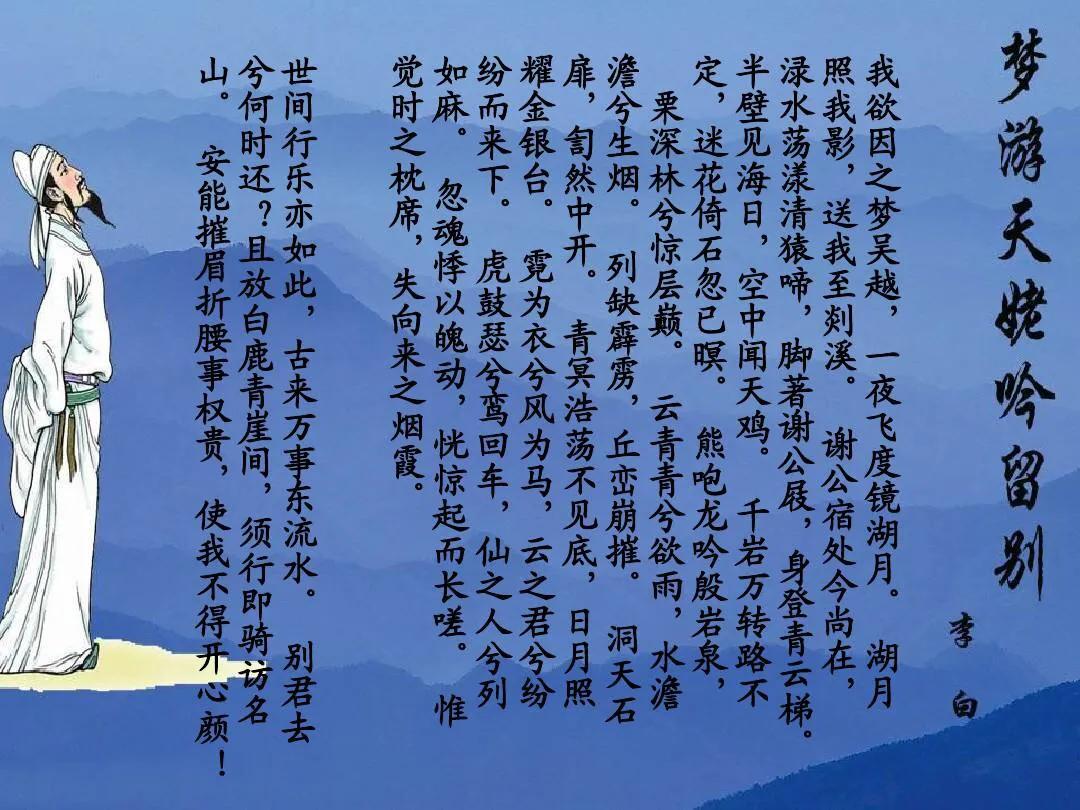 梦游天姥吟留别
李白
我欲因之梦吴越，一夜飞度镜湖月。 湖月
照我影，送我至剡溪。 谢公宿处今尚在，
渌水荡漾清猿啼，脚著谢公屐，身登青云梯。
半壁见海日，空中闻天鸡。 千岩万转路不
定，迷花倚石忽已暝。 熊咆龙吟殷岩泉，
栗深林兮惊层巅。 云青青兮欲雨，水澹
澹兮生烟。 列缺霹雳，丘峦崩摧。 洞天石
扉，訇然中开。 青冥浩荡不见底，日月照
耀金银台。 霓为衣兮风为马，云之君兮纷
纷而来下。 虎鼓瑟兮鸾回车，仙之人兮列
如麻。 忽魂悸以魄动，恍惊起而长嗟。 惟
觉时之枕席，失向来之烟霞。
世间行乐亦如此，古来万事东流水。 别君去
兮何时还？且放白鹿青崖间，须行即骑访名
山。 安能摧眉折腰事权贵，使我不得开心颜！